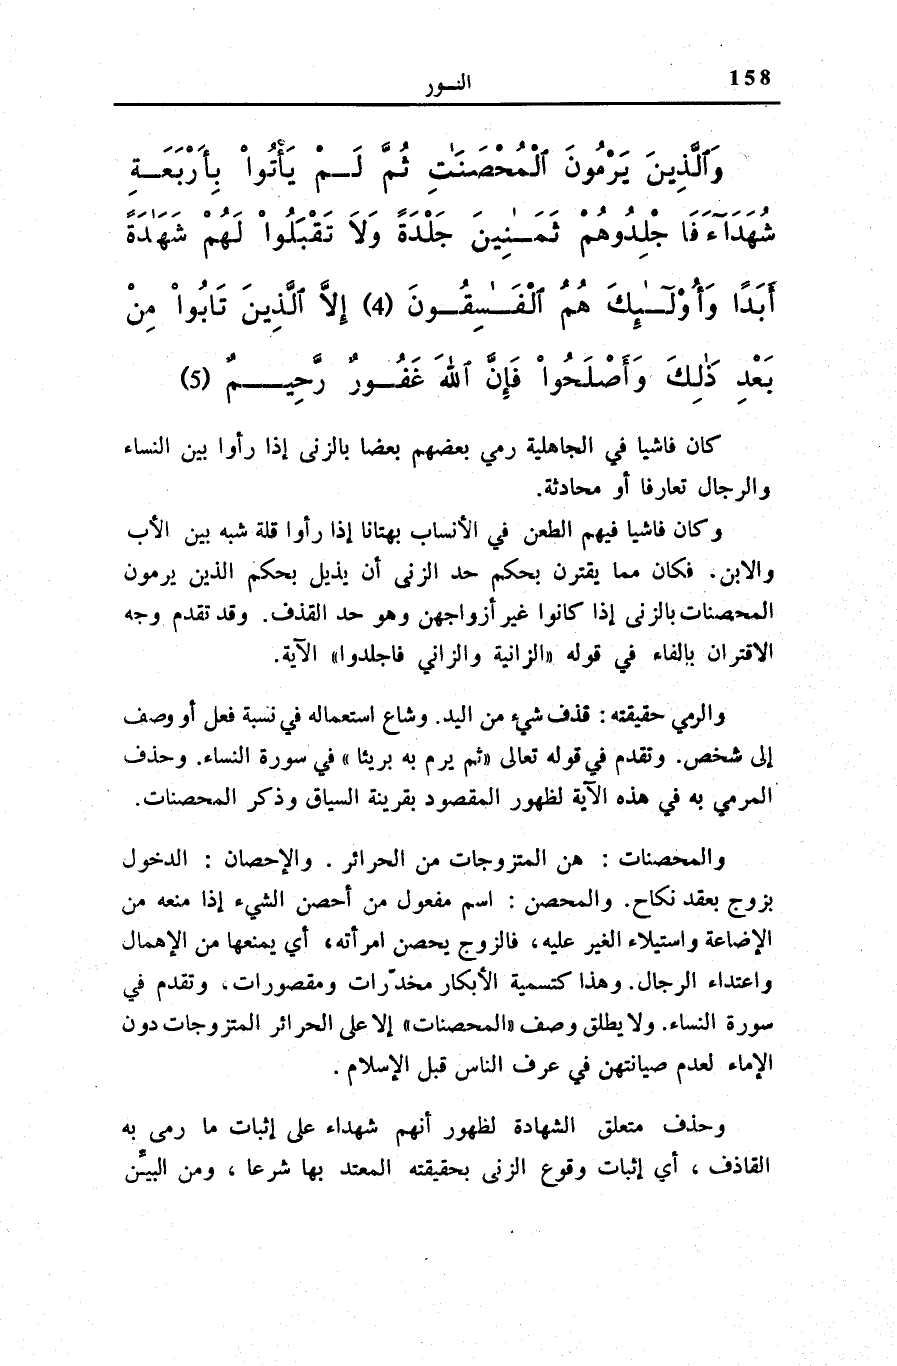 158
النــور
وَٱلَّذِينَ يَرْمُونَ ٱلْمُحْصَنَٰتِ ثُمَّ لَــمْ يَأْتُواْ بِأَرْبَعَــةِ
شُهَدَآءَ فَاجْلِدُوهُمْ ثَمَــٰنِينَ جَلْدَةً وَلَا تَقْبَلُواْ لَهُمْ شَهَٰدَةً
أَبَدًا وَأُوْلَــٰٓئِكَ هُمُ ٱلْفَــٰسِقُــونَ (4) إِلاَّ ٱلَّذِينَ تَابُواْ مِنْ
بَعْدِ ذَٰلِكَ وَأَصْلَحُواْ فَإِنَّ ٱللَّهَ غَفُــورٌ رَّحِيــــمٌ (5)
كان فاشيا في الجاهلية رمي بعضهم بعضا بالزنى إذا رأوا بين النساء
والرجال تعارفا أو محادثة.
وكان فاشيا فيهم الطعن في الأنساب بهتانا إذا رأوا قلة شبه بين الأب
والابن. فكان مما يقترن بحكم حد الزنى أن يذيل بحكم الذين يرمون
المحصنات بالزنى إذا كانوا غير أزواجهن وهو حد القذف. وقد تقدم وجه
الاقتران بالفاء في قوله «الزانية والزاني فاجلدوا» الآية.
والرمي حقيقته : قذف شيء من اليد. وشاع استعماله في نسبة فعل أو وصف
إلى شخص. وتقدم في قوله تعالى «ثم يرم به بريئا » في سورة النساء. وحذف
المرمي به في هذه الآية لظهور المقصود بقرينة السياق وذكر المحصنات.
والمحصنات : هن المتزوجات من الحرائر . والإحصان : الدخول
بزوج بعقد نكاح. والمحصن : اسم مفعول من أحصن الشيء إذا منعه من
الإضاعة واستيلاء الغير عليه، فالزوج يحصن امرأته، أي يمنعها من الإهمال
واعتداء الرجال. وهذا كتسمية الأبكار مخدّرات ومقصورات، وتقدم في
سورة النساء. ولا يطلق وصف «المحصنات» إلا على الحرائر المتزوجات دون
الإماء لعدم صيانتهن في عرف الناس قبل الإسلام .
وحذف متعلق الشهادة لظهور أنهم شهداء على إثبات ما رمى به
القاذف ، أي إثبات وقوع الزنى بحقيقته المعتد بها شرعا ، ومن البيّن